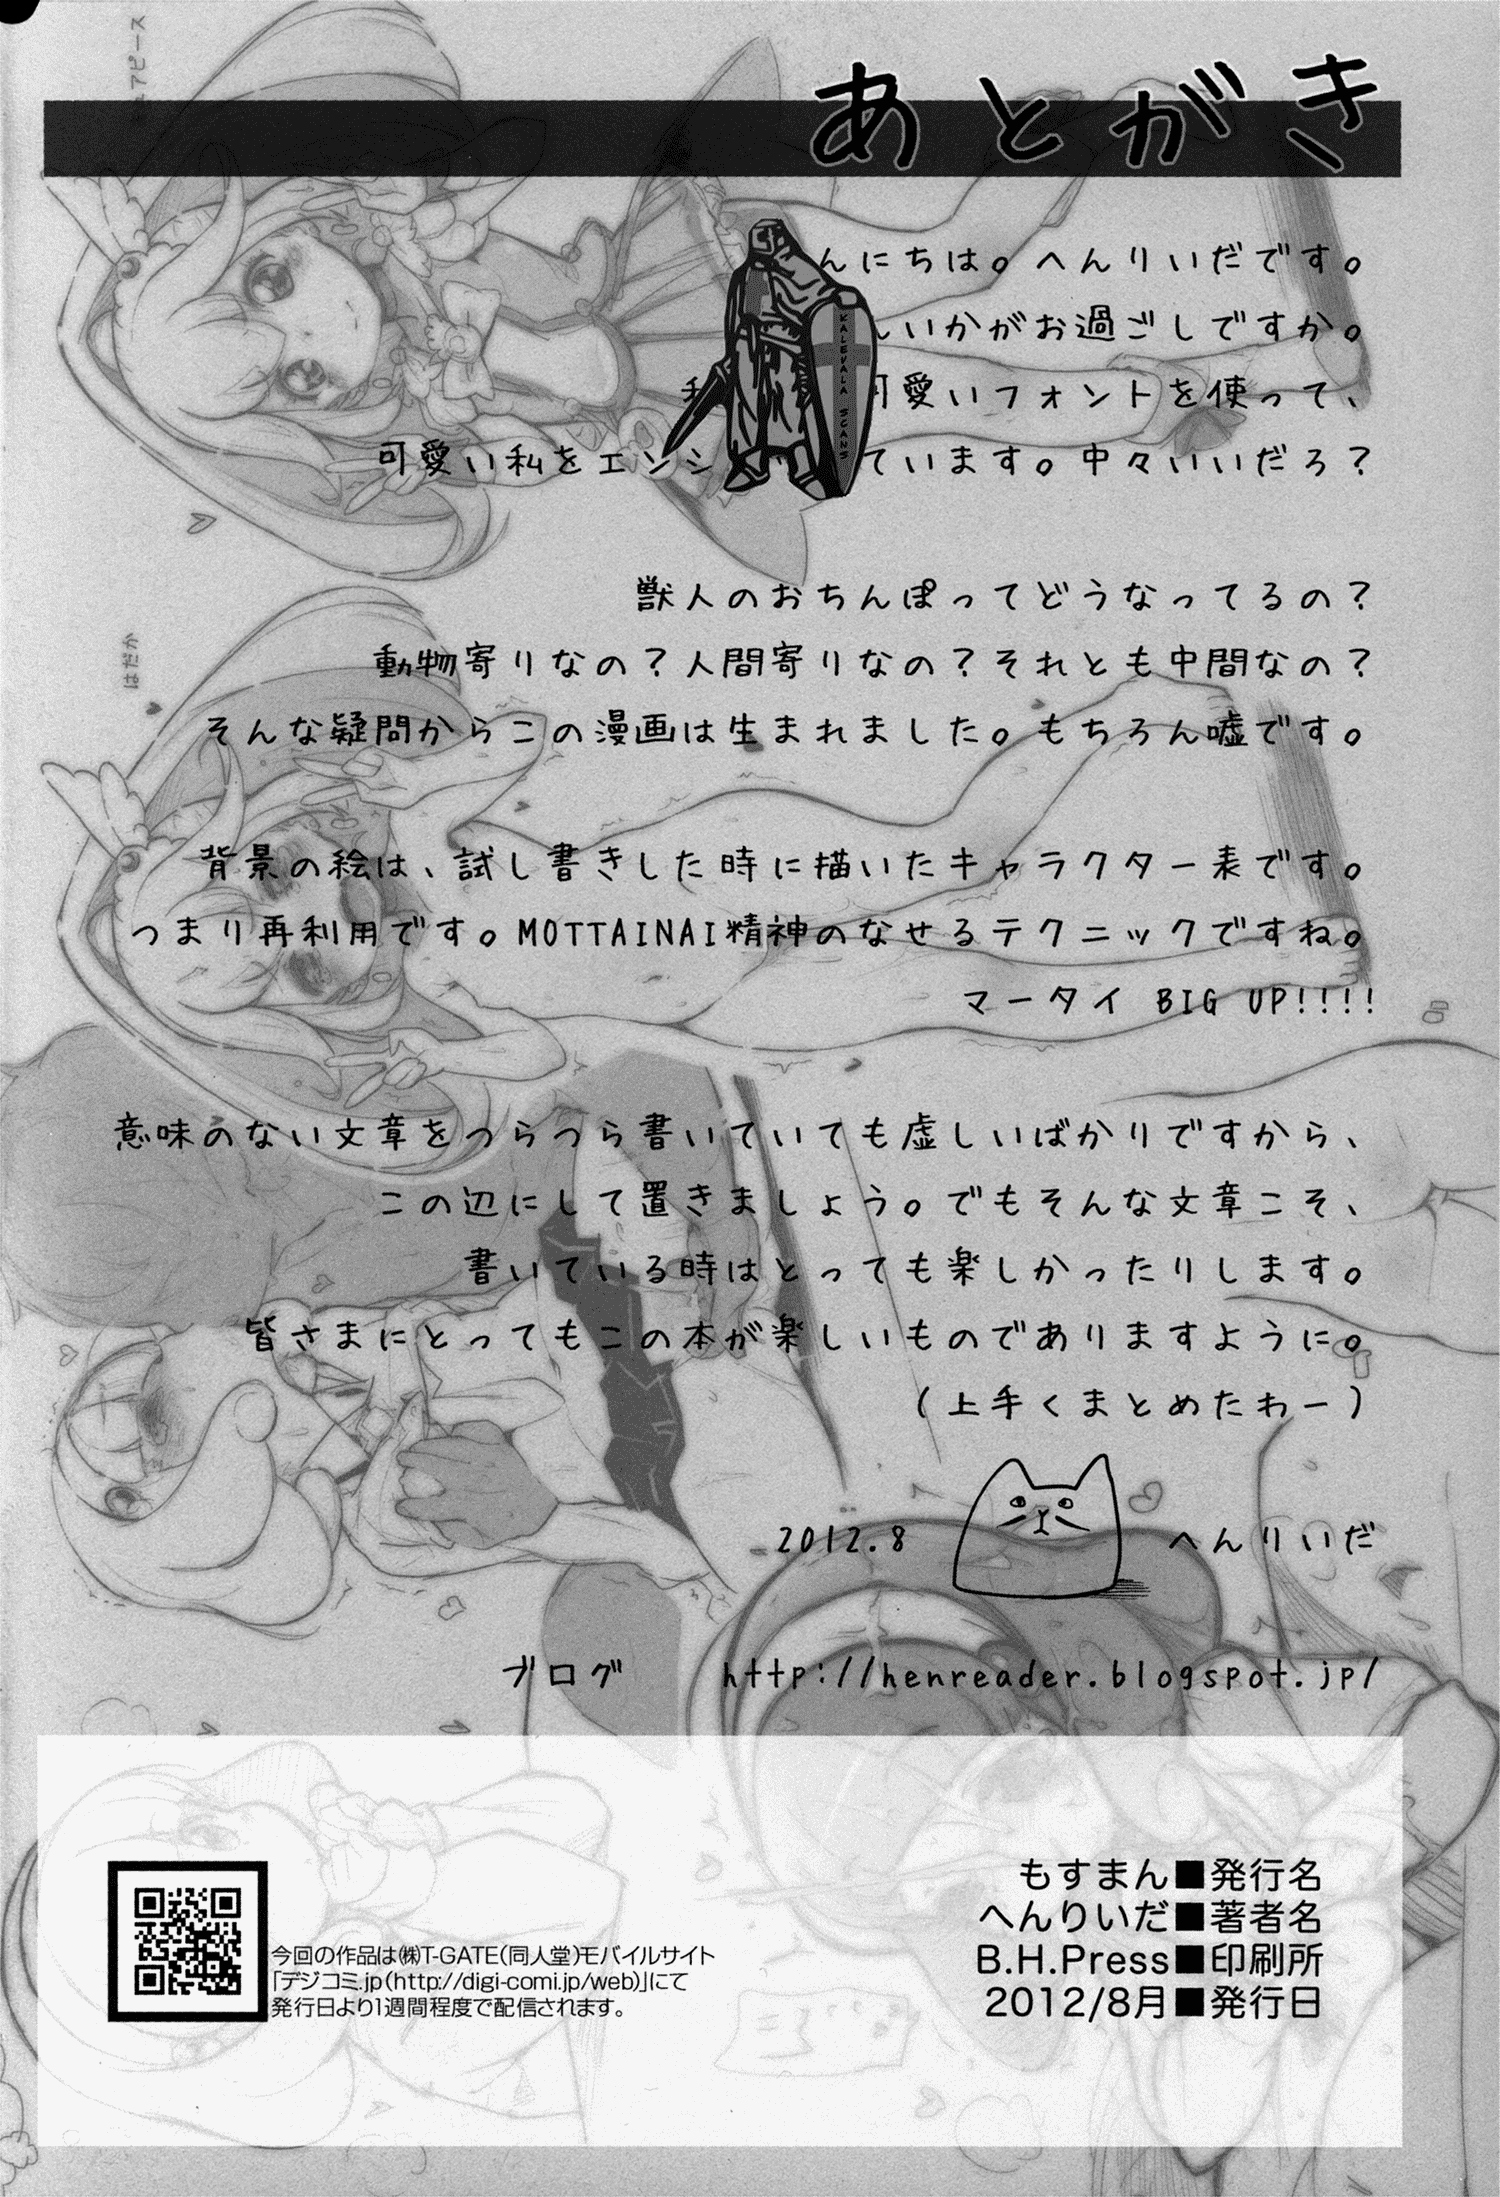 あとがき
んにちは。へんりいだです。
いかがお過ごしですか。
可愛いフォントを使って、
可愛い私をエンジ
ています。中々いいだろ？
獣人のおちんぽってどうなってるの？
動物寄りなの？人間寄りなの？それとも中間なの？
そんな疑問からこの漫画は生まれました。もちろん嘘です。
背景の絵は、試し書きした時に描いたキャラクター表です。
つまり再利用です。MOTTAINAI精神のなせるテクニックですね。
マータイ BIG UP!!!!
意味のない文章をつらつら書いていても虚しいばかりですから、
この辺にして置きましょう。でもそんな文章こそ、
書いている時はとっても楽しかったりします。
皆さまにとってもこの本が楽しいものでありますように。
（上手くまとめたわー）
2012.8 へんりいだ
ブログ http://henreader.blogspot.jp/
KALEVALA SCANS
はだか
今回の作品は㈱T-GATE(同人堂)モバイルサイト
「デジコミ.jp(http://digi-comi.jp/web)」にて
発行日より1週間程度で配信されます。
もすまん■発行名
へんりいだ■著者名
B.H.Press■印刷所
2012/8月■発行日